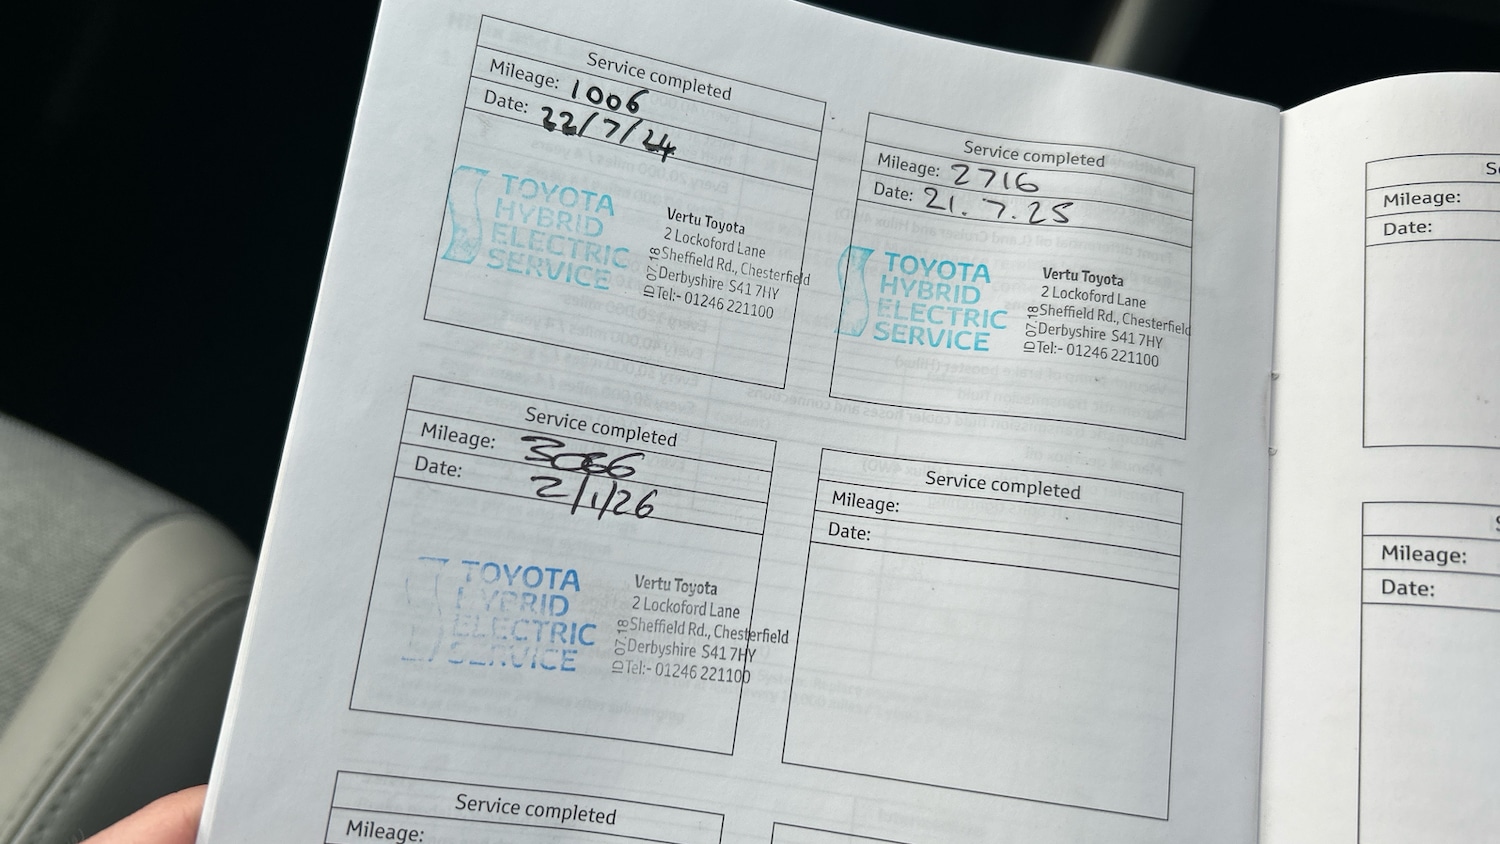 Service completed
Mileage: 1006
Date: 22/7/24
TOYOTA
HYBRID
ELECTRIC
SERVICE
Vertu Toyota
2 Lockoford Lane
Sheffield Rd., Chesterfield
Derbyshire S41 7HY
Tel:- 01246 221100
ID 07.18
Service completed
Mileage: 2716
Date: 21.7.25
TOYOTA
HYBRID
ELECTRIC
SERVICE
Vertu Toyota
2 Lockoford Lane
Sheffield Rd., Chesterfield
Derbyshire S41 7HY
Tel:- 01246 221100
ID 07.18
Service completed
Mileage:
Date: 2/1/26
TOYOTA
HYBRID
ELECTRIC
SERVICE
Vertu Toyota
2 Lockoford Lane
Sheffield Rd., Chesterfield
Derbyshire S41 7HY
Tel:- 01246 221100
ID 07.18
Service completed
Mileage:
Date:
Service completed
Mileage:
Mileage:
Date:
Mileage:
Date: